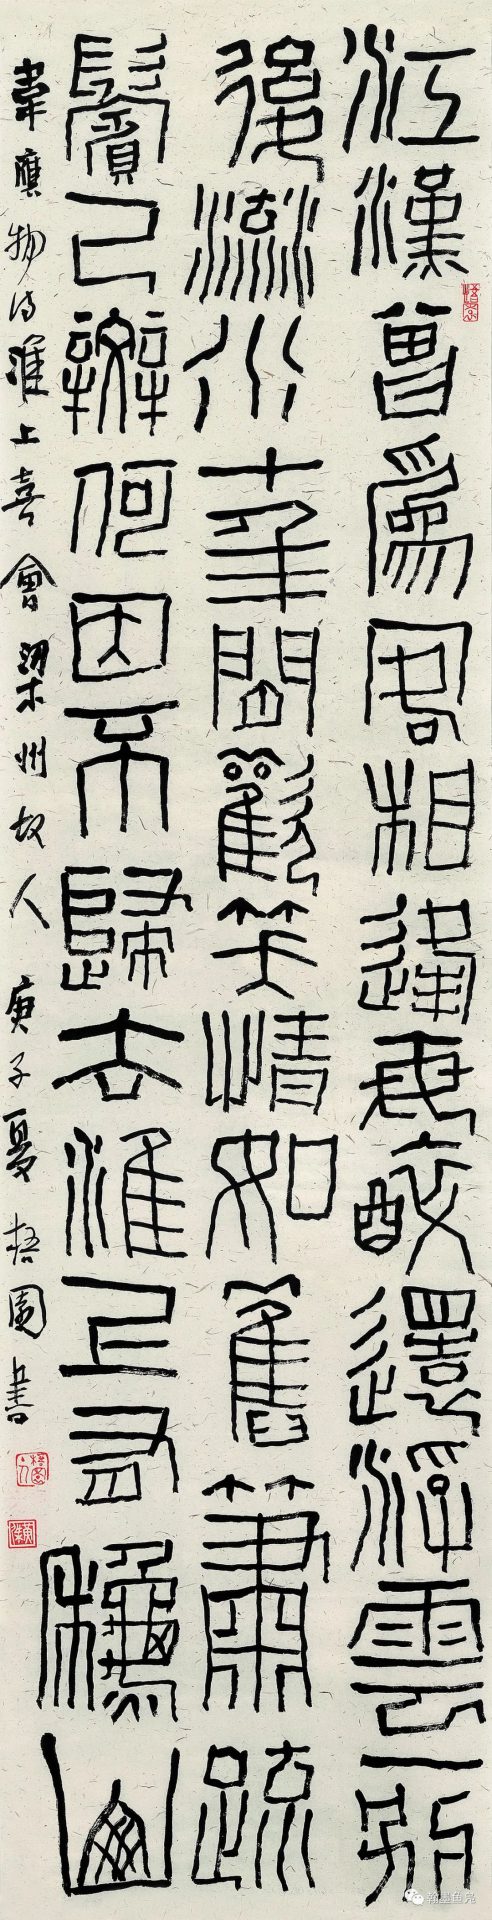 江漢曾為客相逢每醉還浮雲一別
後流水十年間歡笑情如舊蕭疏
鬢已辬何因不歸去淮上有秋山
韋應物詩淮上喜會梁州故人 庚子夏梧園書
翰墨鱼兒